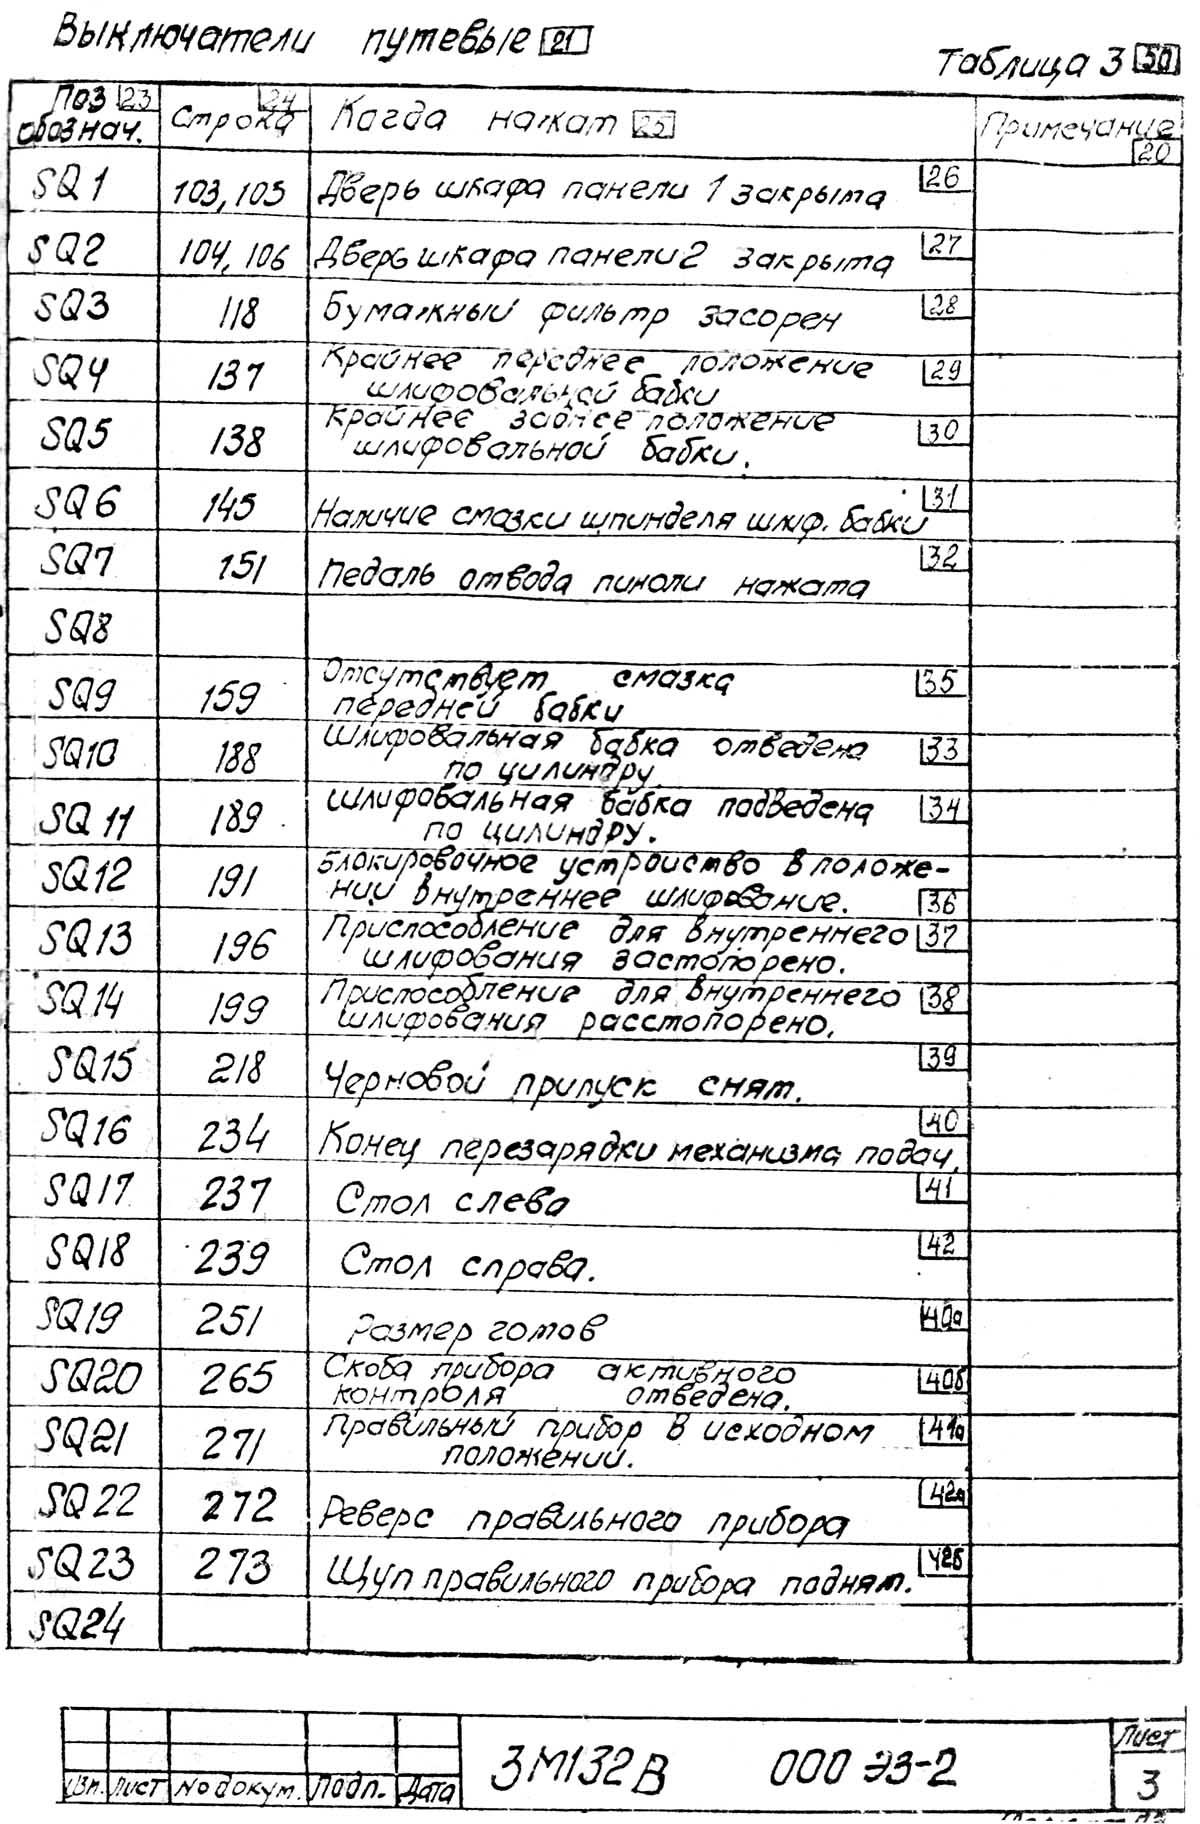 Выключатели путевые 21
Таблица 3 50
Поз 23 обознач. | Строка 24 | Когда нажат 25 | Примечание 20
SQ1 | 103, 105 | Дверь шкафа панели 1 закрыта 26
SQ2 | 104, 106 | Дверь шкафа панели 2 закрыта 27
SQ3 | 118 | Бумажный фильтр засорен 28
SQ4 | 137 | Крайнее переднее положение 29
шлифовальной бабки
SQ5 | 138 | Крайнее заднее положение 30
шлифовальной бабки.
SQ6 | 145 | Наличие смазки шпинделя шлиф. бабки 31
SQ7 | 151 | Педаль отвода пиноли нажата 32
SQ8
SQ9 | 159 | Отсутствует смазка 35
передней бабки
SQ10 | 188 | Шлифовальная бабка отведена 33
по цилиндру.
SQ11 | 189 | Шлифовальная бабка подведена 34
по цилиндру.
SQ12 | 191 | Блокировочное устройство в положе-
нии внутреннее шлифование. 36
SQ13 | 196 | Приспособление для внутреннего 37
шлифования застопорено.
SQ14 | 199 | Приспособление для внутреннего 38
шлифования расстопорено.
SQ15 | 218 | Черновой припуск снят. 39
SQ16 | 234 | Конец перезарядки механизма подач. 40
SQ17 | 237 | Стол слева 41
SQ18 | 239 | Стол справа. 42
SQ19 | 251 | Размер готов 40а
SQ20 | 265 | Скоба прибора активного 40б
контроля отведена.
SQ21 | 271 | Правильный прибор в исходном 41а
положении.
SQ22 | 272 | Реверс правильного прибора 42а
SQ23 | 273 | Щуп правильного прибора поднят. 42б
SQ24
Изм. Лист № докум. Подп. Дата
3М132В 000 Э3-2
Лист
3